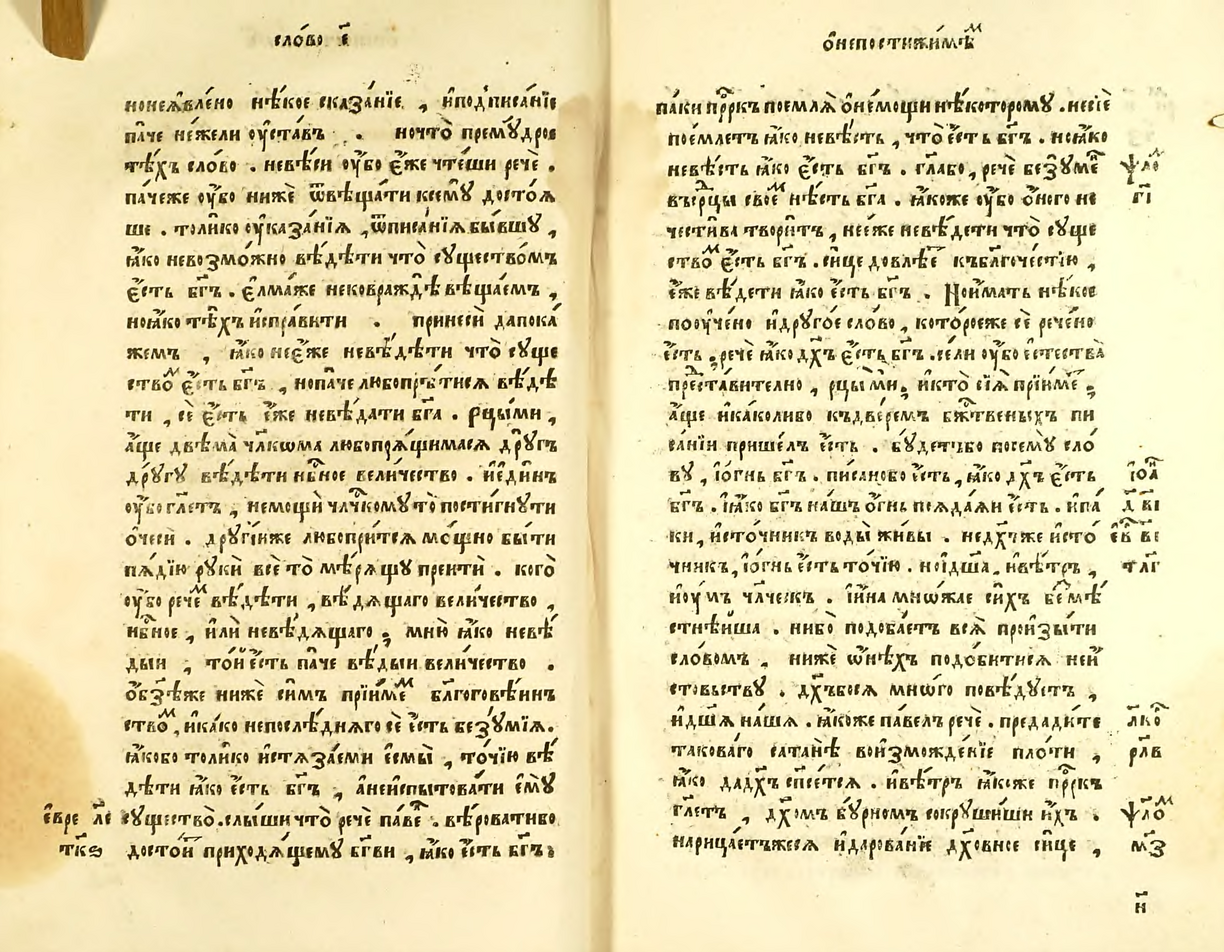 сло́во є҃
нонеꙗ҆вле́но нѣ́кое сказа́нїе , и҆подписа́нїе
па́че не́жели оу҆ста́въ . ночто̀ премꙋ́дров
тѣ́хъ сло́во . невѣ́си оу҆́бо є҆́же чте́ши речѐ .
па́чеже оу҆́бо нижѐ ѿвѣща́ти ксемꙋ̀ досто́ѧ
ше . толи́ко оу҆каза́нїѧ , ѿписа́нїѧ бы́вшꙋ ,
ꙗ҆́ко невозмо́жно вѣ́дѣти что̀ сꙋщество́мъ
є҆́сть бг҃ъ . є҆лма́же нековраждѣ̀ вѣща́емъ ,
ноꙗ҆́ко тѣ́хъ и҆спра́вити . принесѝ дапока́
жемъ , ꙗ҆́ко нее҆́же невѣ́дѣти что̀ сꙋще
ство́ᷟ є҆́сть бг҃ъ , нопа́че любопрѣ́тисѧ вѣ́дѣ
ти , сѐ є҆́сть є҆́же невѣ́дати бг҃а . Рцы́ми ,
а҆́ще двѣ́ма̀ чл҃кѡма любопрѧ́щимасѧ дрꙋ́гъ
дрꙋ́гꙋ вѣ́дѣти нбⷭ҇ное вели́чество . и҆є҆ди́нъ
оу҆́бо гл҃етъ , немо́щи чл҃чкомꙋ то̀ пости́гнꙋти
о҆че́си . дрꙋгі́иже любопри́тсѧ мо́щно бы́ти
пѧ́дїю рꙋкѝ всѐ то̀ мѣ́рѧщꙋ преитѝ . кого̀
оу҆́бо рече́ᷟ вѣ́дѣти , вѣ́дѧщаго вели́чество ,
нбⷭ҇ное , и҆лѝ невѣ́дѧщаго ; мню̀ ꙗ҆́ко невѣ́
дыи , то́и є҆́сть па́че вѣ́дыи вели́чество .
о҆бз҃ѣ́же нижѐ си́мъ прїи́ме́ᷟ бл҃гоговѣ́инъ
ство́ᷟ , и҆ка́ко непослѣ́днѧго сѐ є҆́сть безꙋ́мїѧ .
ꙗ҆́кобо толи́ко и҆стѧза́еми є҆смы̀ , то́чїю вѣ́
дѣти ꙗ҆́ко є҆́сть бг҃ъ , а҆неи҆спы́товати є҆мꙋ̀
є҆вре зⷱ҇ає сꙋ́щество . слы́ши что̀ речѐ па́веⷧ . вѣ́роватибо
тк҃ѕ досто́и приходѧ́щемꙋ бг҃ви , ꙗ҆́ко є҆́сть бг҃ъ ,
о҆непостижи́мѣᷟ
па́ки прⷪ҇ркъ поемлѧ̀ о҆не́мощи нѣ́которомꙋ . несїѐ
пое́млетъ ꙗ҆́ко невѣ́сть , что̀ є҆́сть бг҃ъ . ноꙗ҆́ко
невѣ́сть ꙗ҆́ко є҆́сть бг҃ъ . гл҃або , речѐ безꙋ́меⷩ҇ ѱало́ᷟ
въсрⷣцы свое́ᷟ нѣ́сть бг҃а . ꙗ҆́коже оу҆́бо о҆́ного не г҃і
чести́ва твори́тъ , нее́же невѣ́дети что̀ сꙋще
ство́ᷟ є҆́сть бг҃ъ . си́це довлѣ́еⷮ къбл҃гоче́стїю ,
є҆́же вѣ́дети ꙗ҆́ко є҆́сть бг҃ъ . Нои́мать нѣ́кое
пооу҆че́но и҆дрꙋго́е сло́во , кото́роеже сѐ рече́но
є҆́сть , речѐ ꙗ҆́ко дх҃ъ є҆́сть бг҃ъ . є҆сли оу҆́бо є҆стества̀
преⷣстави́телно , рцы́ ми , и҆кто̀ сїѧ̀ прїи́меⷮ ;
а҆́ще и҆каколи́бо къдве́ремъ бж҃твеныхъ пи
са́нїи прише́лъ є҆́сть . бꙋ́детъбо посемꙋ̀ сло́
вꙋ , і҆о҆́гнь бг҃ъ . пи́санобо є҆́сть , ꙗ҆́ко дх҃ъ є҆́сть і҆ѡа́ⷩ
бг҃ъ . і҆ꙗ҆́ко бг҃ъ на́шъ о҆́гнь поѧда́ѧи є҆́сть . и҆па́ д҃ ві
ки , и҆сто́чникъ воды̀ жи́вы . недх҃ъже и҆сто́ є҆в҃ ві
чникъ , і҆о҆́гнь є҆́сть то́чїю . нои҆дш҃а , и҆вѣ́тръ , тл҃г
и҆оу҆́мъ чл҃ческъ . і҆и҆́на мнѡжае си́хъ беⷥ мѣ́
стнѣ́иша . ни́бо подоба́етъ всѧ̀ прои́зыти
сло́вомъ , нижѐ ѡ҆нѣ́хъ подо́битисѧ неи́
стовьствꙋ . дх҃ъбосѧ мно́го повѣ́дꙋетъ ,
и҆дш҃ѧ на́шѧ . ꙗ҆́коже па́велъ речѐ . предади́те л҃коⷩ
такова́го сатанѣ̀ воизможде́нїе пло́ти , рл҃в
ꙗ҆́ко дадх҃ъ спⷭ҇етсѧ . и҆вѣ́тръ ꙗ҆́коже прⷪ҇ркъ
гл҃етъ , дх҃омъ бꙋ́рномъ сокрꙋши́ши и҆́хъ . ѱало́ᷟ
нарица́етъжесѧ и҆дарова́нїе дх҃овное си́це , м҃з
н҃